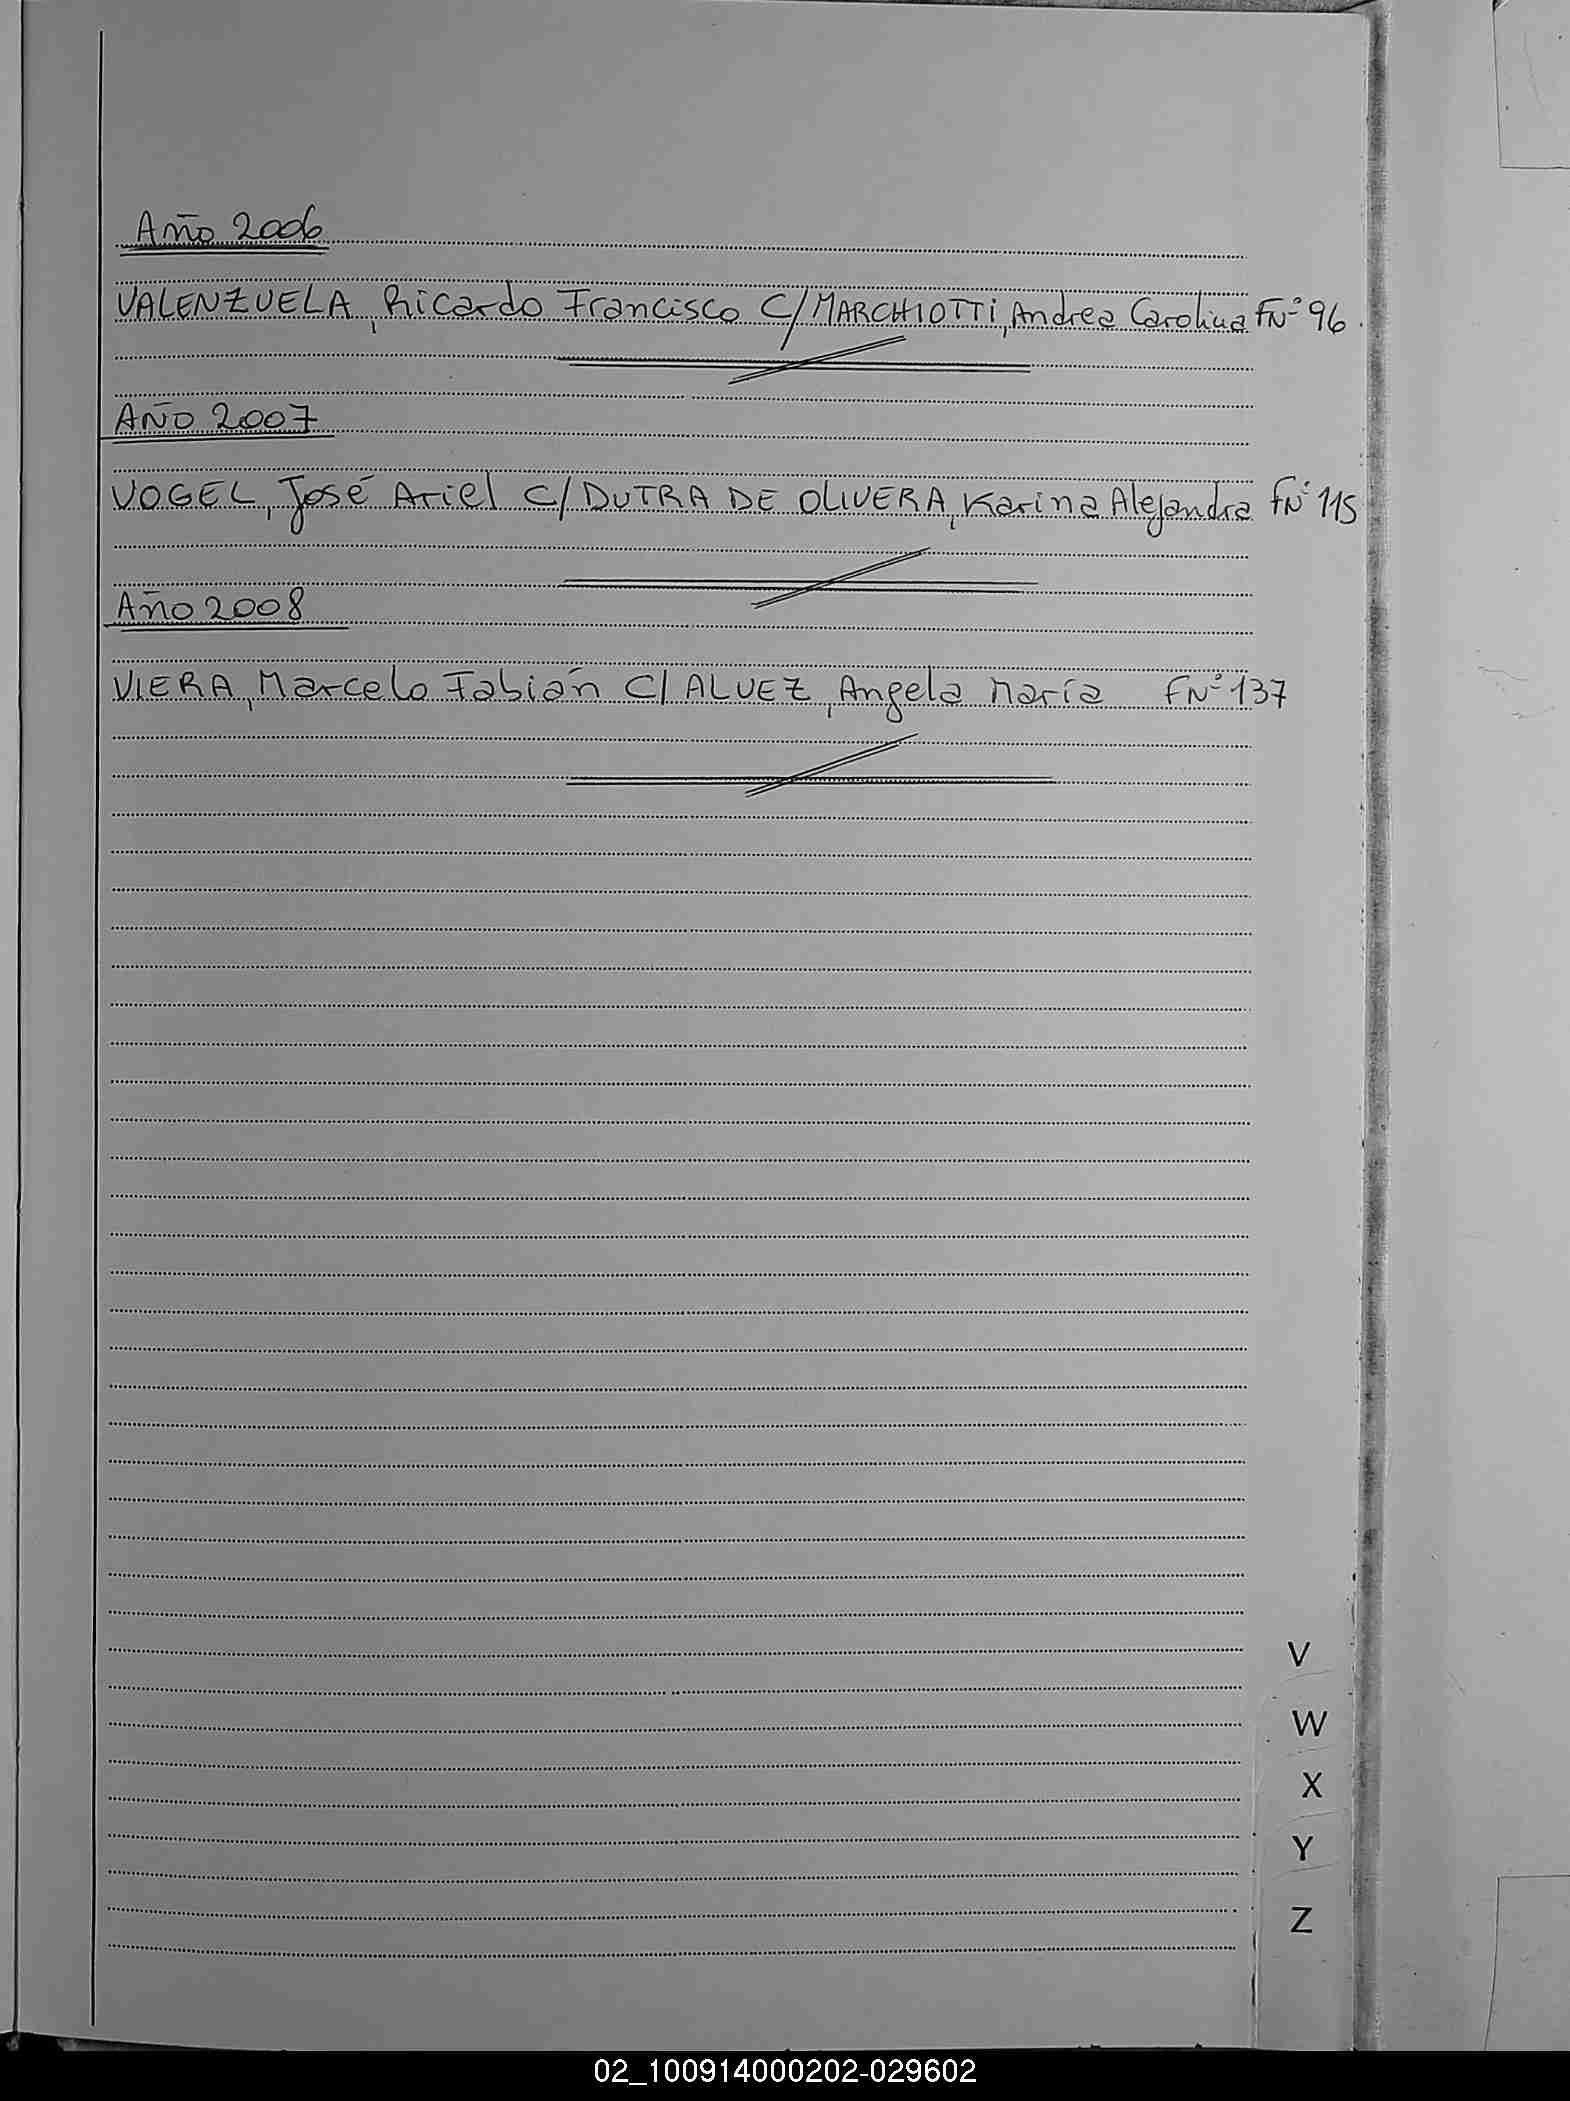 Año 2006
VALENZUELA, Ricardo Francisco C/MARCHIOTTi, Andrea Carolina FN° 96.
AÑO 2007
VOGEL, José Ariel C/ DUTRA DE OLIVERA, Karina Alejandra FN° 115
Año 2008
VIERA, Marcelo Fabián C/ ALVEZ, Angela María FN° 137
V
W
X
Y
Z
02_100914000202-029602